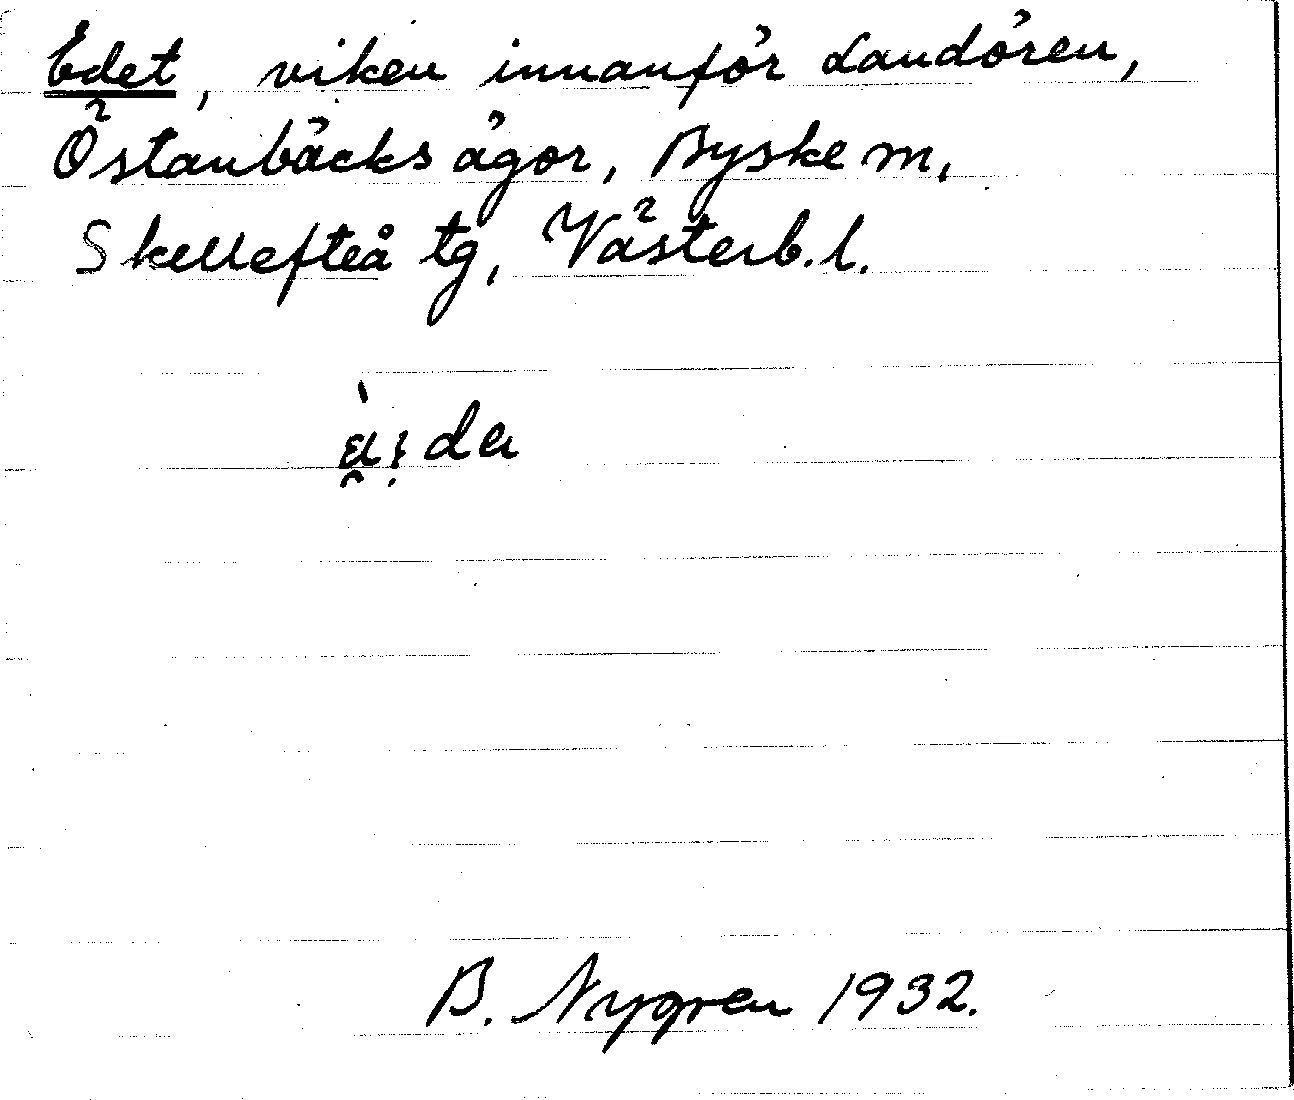 Edet, viken innanför Landören,
Östanbäcks ägor, Byske m,
Skellefteå tg, Västerb. l.
B. Nygren 1932.